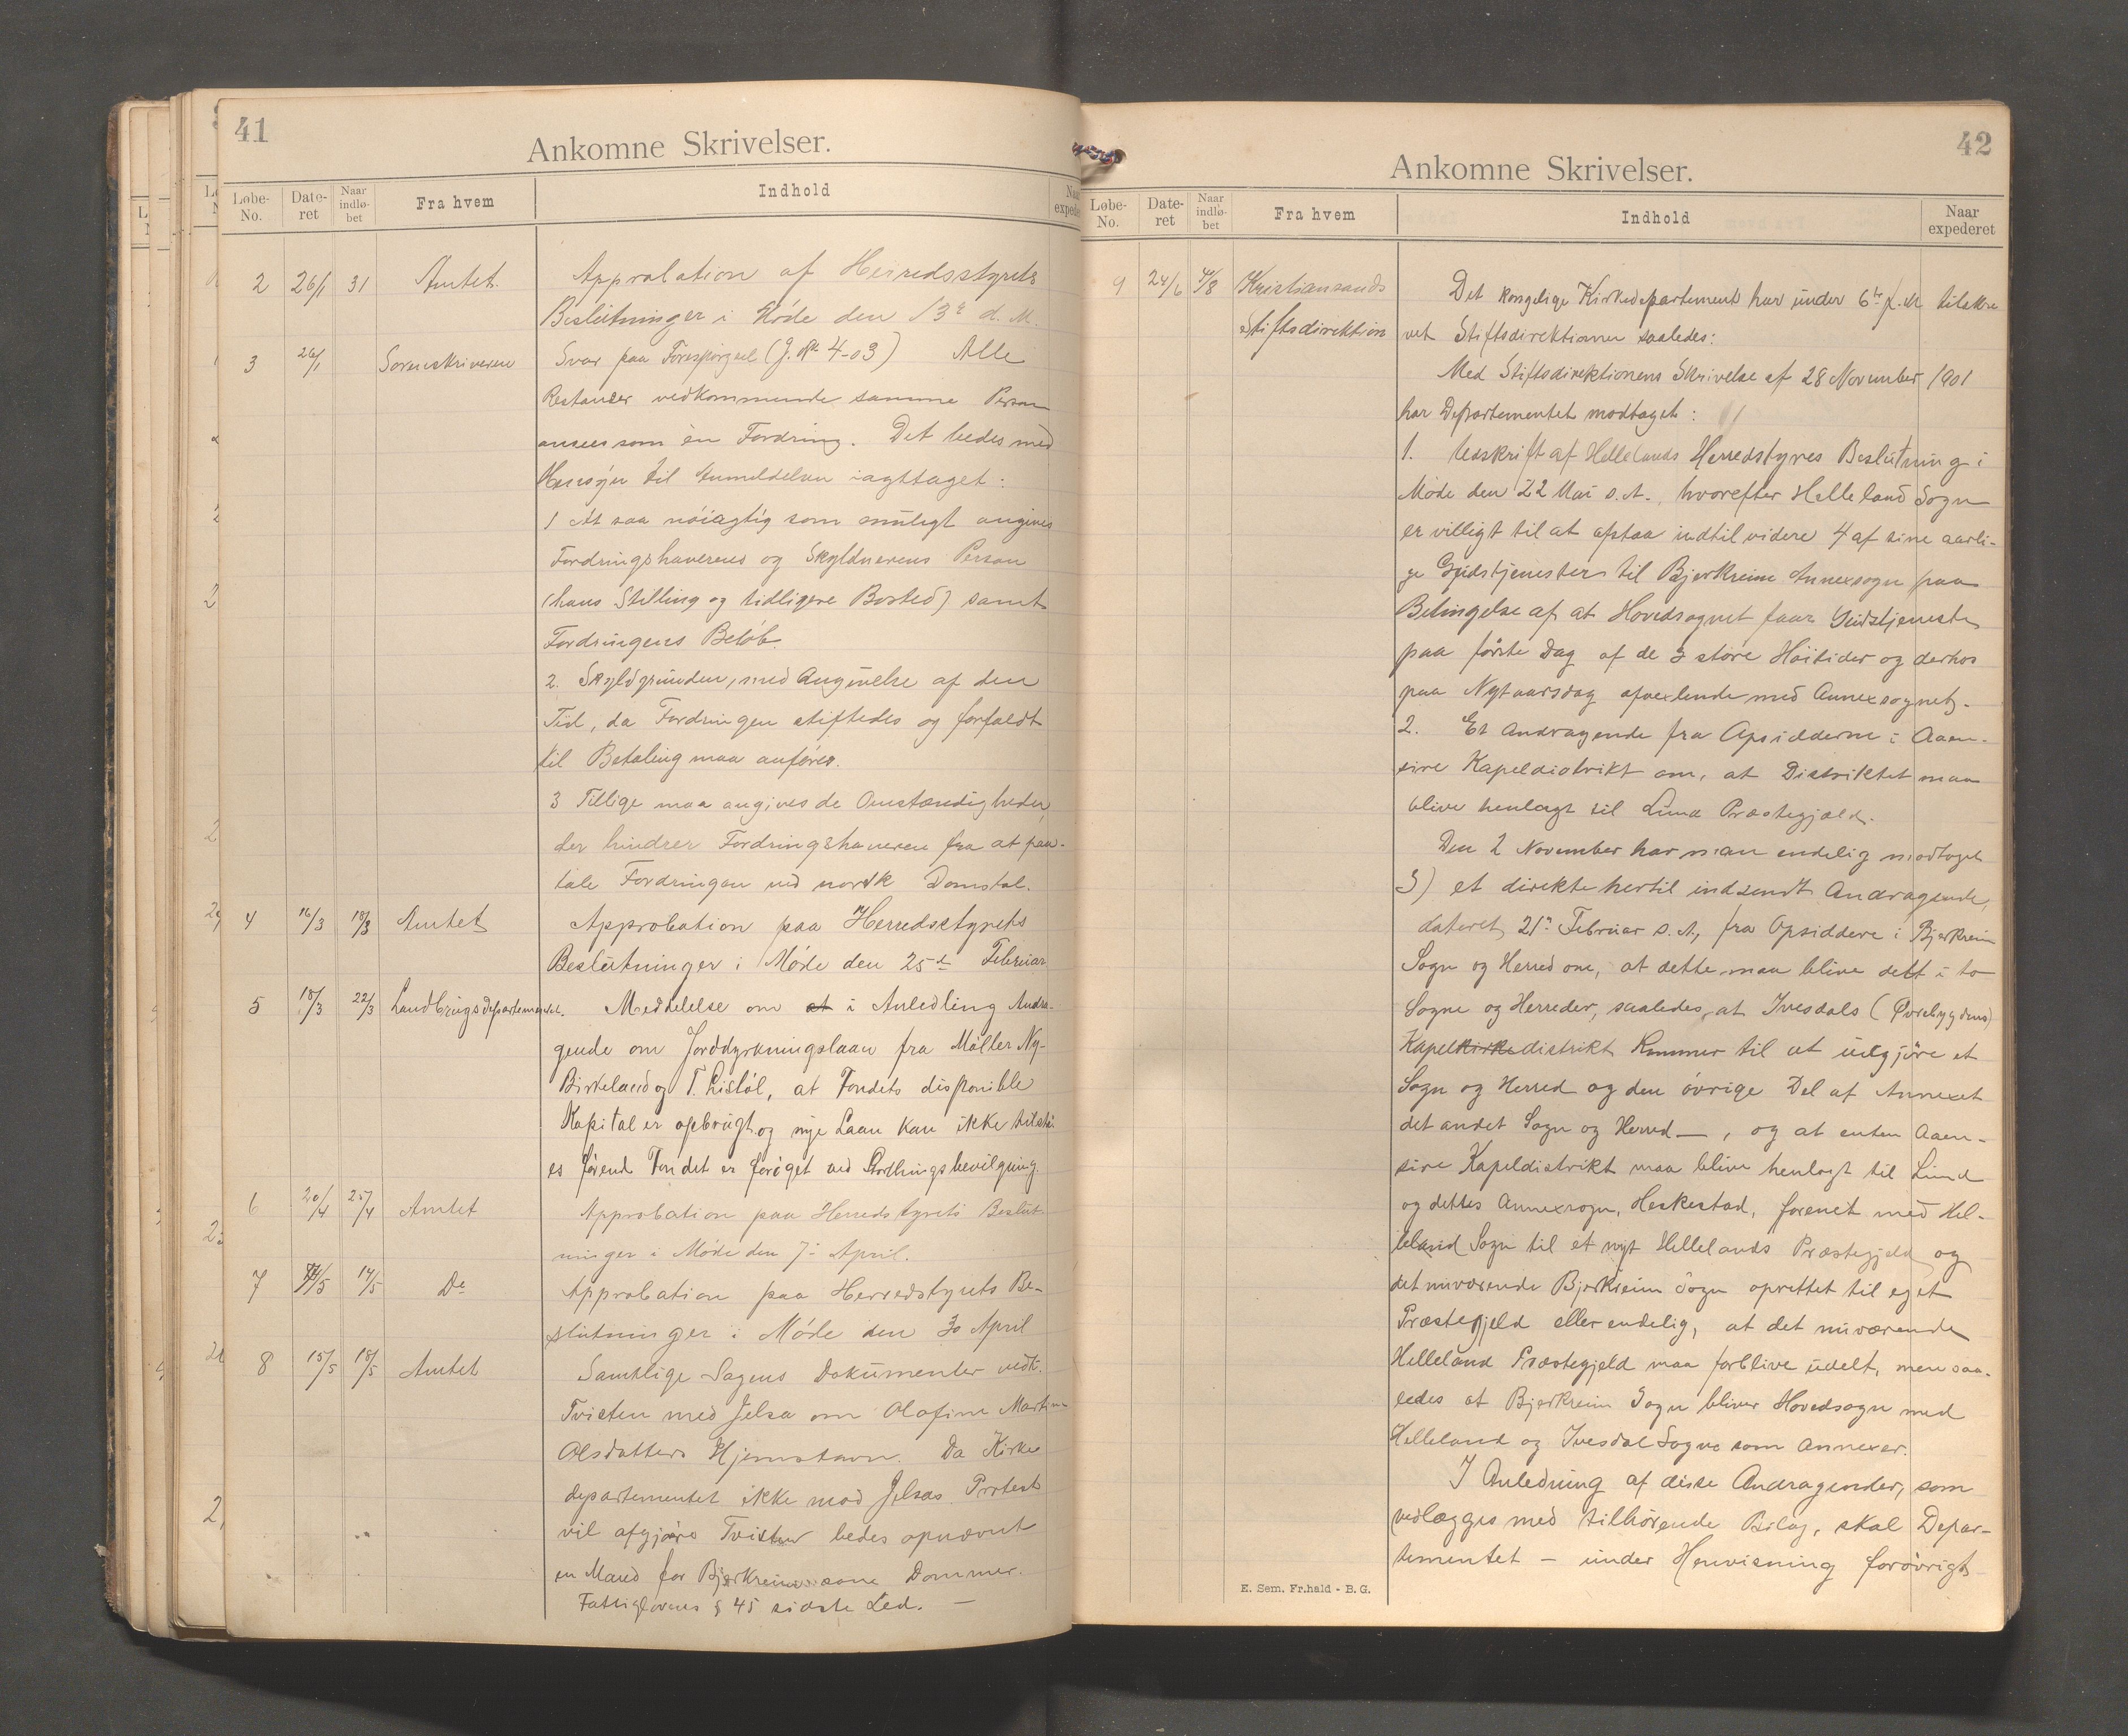 41
Ankomne Skrivelser.
Løbe-No. Dateret Naar indløbet Fra hvem Indhold
2 26/1 31 Amtet. Approbation af Herredsstyrets
Beslutninger i Møde den 13de d. M.
3 26/1 Sorenskriveren Svar paa Forespørgsel (J. No 4-03) Alle
Restancer vedkommende samme Person
ansees som én Fordring. Det bedes med
Hensyn til Anmeldelsen iagttaget:
1 At saa nøiagtig som muligt angives
Fordringshaverens og Skyldnerens Person
(hans Stilling og tidligere Bosted) samt
Fordringens Beløb.
2. Skyldgrunden, med Angivelse af den
Tid, da Fordringen stiftedes og forfaldt
til Betaling maa anføres.
3 Tillige maa angives de Omstændigheder,
der hindrer Fordringshaveren fra at paa-
tale Fordringen ved norsk Domstol.
4 16/3 18/3 Amtet Approbation paa Herredsstyrets
Beslutninger i Møde den 25de Februar
5 18/3 22/3 Landbrugsdepartementet. Meddelelse om at i Anledling Andra-
gende om Jorddyrkningslaan fra Møller Ny-
Birkeland og T. Lisløl, at Fondets disponible
Kapital er opbrugt og nye Laan kan ikke tilstaa-
es førend Fondet er forøget ved Storthingsbevilgning.
6 20/4 25/4 Amtet Approbation paa Herredsstyrets Beslut-
ninger i Møde den 7de April.
7 14/5 Do Approbation paa Herredstyrets Be-
slutninger i Møde den 30 April
8 15/5 18/5 Amtet Samtlige Sagens Dokumenter vedk.
Tvisten med Jelsa om Olafine Martine
Olsdatters Hjemstavn. Da Kirke
departementet ikke mod Jelsas Protest
vil afgjøre Tvisten bedes opnævnt
en Mand for Bjerkreim som Dommer.
Fattiglovens § 45 sidste Led. —
42
Ankomne Skrivelser.
Løbe-No. Dateret Naar indløbet Fra hvem Indhold Naar expederet
9 24/6 4/8 Kristiansands Det kongelige Kirkedepartement har under 6te f. M. tilskre
Stiftsdirektion vet Stiftsdirektionen saaledes:
Med Stiftsdirektionens Skrivelse af 28 November 1901
har Departementet modtaget:
1. Udskrift af Hellelands Herredstyres Beslutning i
Møde den 22 Mai s. A., hvorefter Helleland Sogn
er villigt til at afstaa indtil videre 4 af sine aarli-
ge Gudstjenester til Bjerkreim Annexsogn paa
Betingelse af at Hovedsognet faar Gudstjeneste
paa første Dag af de 3 store Høitider og derhos
paa Nytaarsdag afvexlende med Annexsognet.
2. Et Andragende fra Opsidderne i Aaen-
sire Kapeldistrikt om, at Distriktet maa
blive henlagt til Lund Præstegjæld.
Den 2 November har man endelig modtaget
3) et direkte hertil indsendt Andragende,
dateret 21de Februar s. A, fra Opsiddere i Bjerkreim
Sogn og Herred om, at dette maa blive delt i to
Sogne og Herreder, saaledes, at Ivesdals (Øvrebygdens)
Kapelkirkedistrikt kommer til at udgjøre et
Sogn og Herred og den øvrige Del af Annexet
det andet Sogn og Herred —, og at enten Aaen-
sire Kapeldistrikt maa blive henlagt til Lund
og dettes Annexsogn, Heskestad, forenet med Hel-
leland Sogn til et nyt Hellelands Præstegjeld og
det nuværende Bjerkreim Sogn oprettet til eget
Præstegjeld eller endelig, at det nuværende
Helleland Præstegjeld maa forblive udelt, men saa-
ledes at Bjerkreim Sogn bliver Hovedsogn med
Helleland og Ivesdal Sogne som Annexer.
I Anledning af disse Andragender, som
vedlægges med tilhørende Bilag, skal Depar-
tementet — under Henvisning forøvrigt
E. Sem. Fr.hald - B. G.